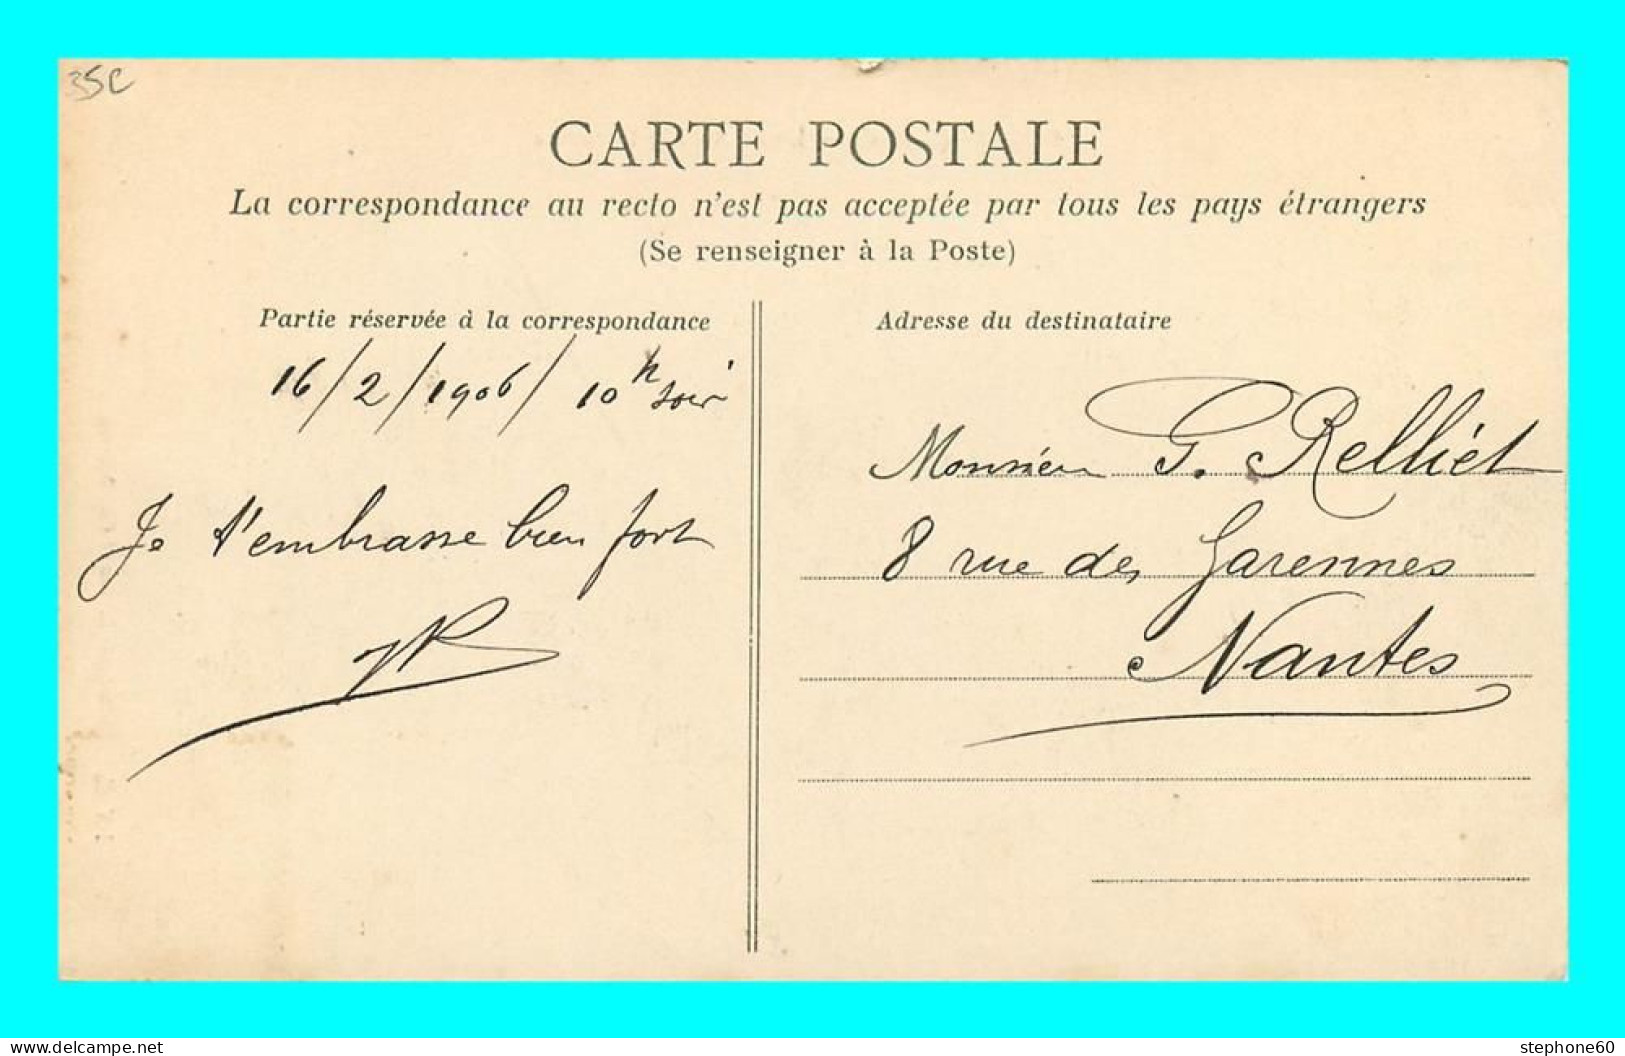 35C
CARTE POSTALE
La correspondance au recto n'est pas acceptée par tous les pays étrangers
(Se renseigner à la Poste)
Partie réservée à la correspondance
16/2/1906/ 10h soir
Je t'embrasse bien fort
Adresse du destinataire
Monsieur G. Relliet
8 rue des Garennes
Nantes
www.delcampe.net
stephone60